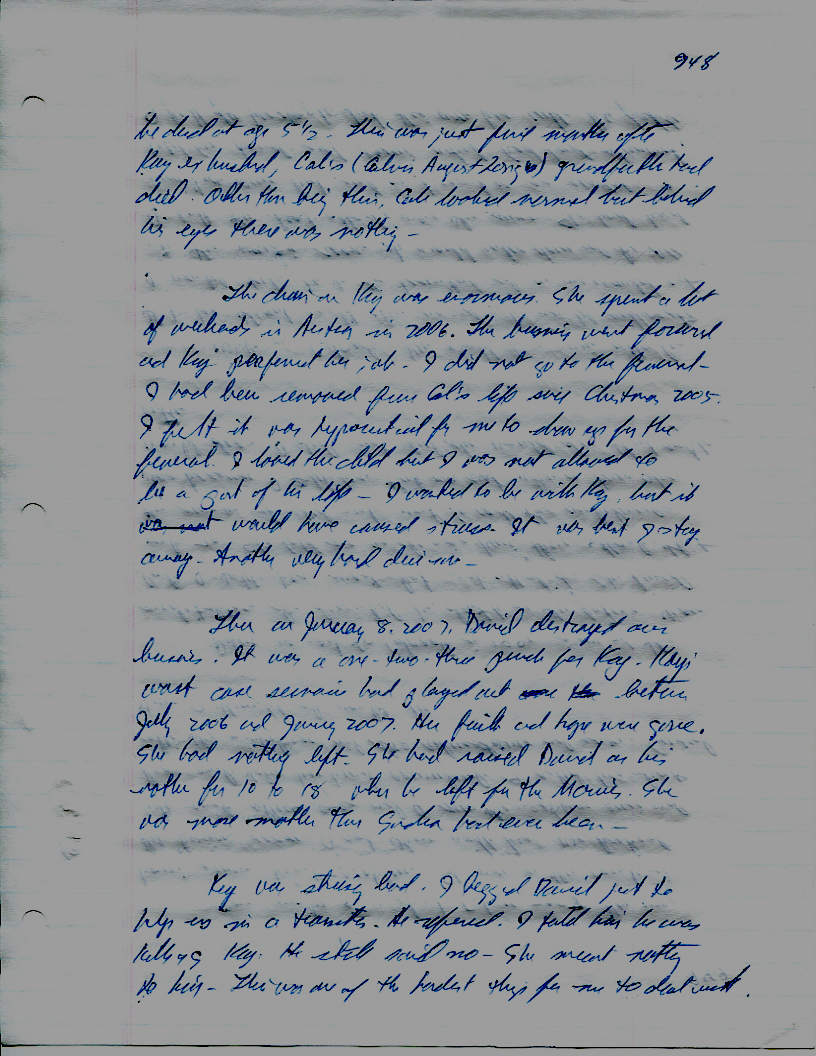 948
he died at age 5 1/2. This was just five months after
Kay ex husband, Cale's (Calvin August) grandfather had
died. Other than being thin, Cale looked normal but behind
his eyes there was nothing -
The drain on Kay was enormous. She spent a lot
of weekends in Austin in 2006. The business went forward
and Kay performed her job. I did not go to the funeral -
I had been removed from Cal's life since Christmas 2005.
I felt it was hypocritical for me to show up for the
funeral. I loved the child but I was not allowed to
be a part of his life - I wanted to be with Kay, but it
was not would have caused stress. It was best to stay
away - Another very hard decision -
Then on January 8, 2007, David destroyed our
business. It was a one-two-three punch for Kay. Kay's
worst case scenario had played out between
July 2006 and January 2007. Her faith and hope were gone.
She had nothing left. She had raised David as his
mother for 10 to 18 when he left for the Marines. She
was more mother than had ever been -
Kay was struggling bad. I begged David just to
help us in a transition. He refused. I told him he was
killing Kay. He still said no - She meant nothing
to him - This was one of the hardest things for me to deal with.